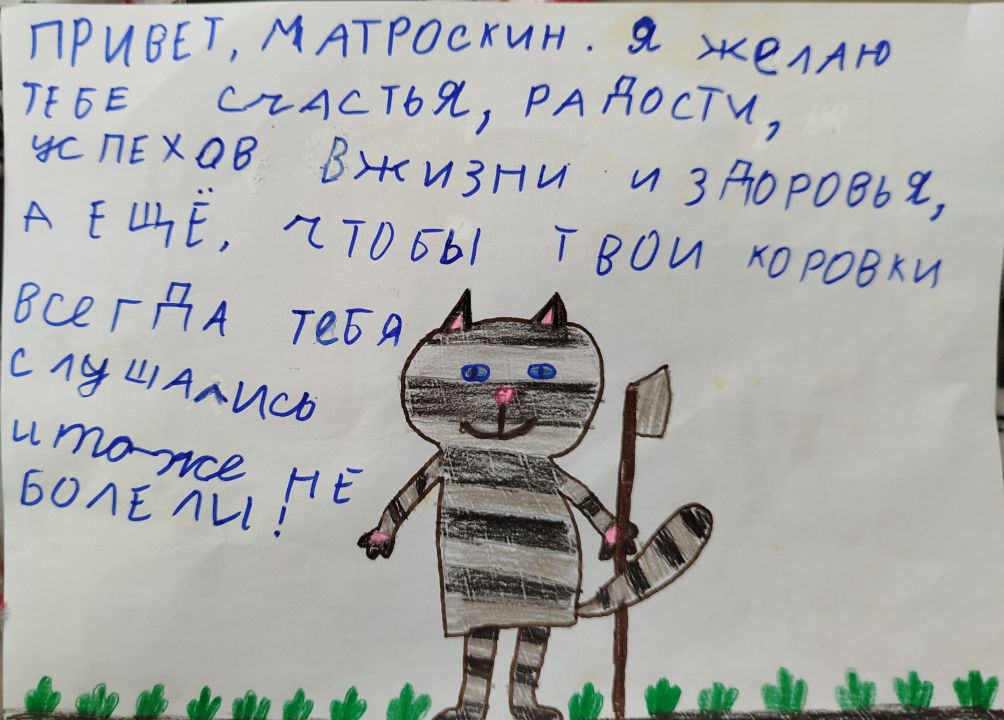 ПРИВЕТ, МАТРОСКИН. Я ЖЕЛАЮ
ТЕБЕ СЧАСТЬЯ, РАДОСТИ,
УСПЕХОВ ВЖИЗНИ И ЗДОРОВЬЯ,
А ЕЩЁ, ЧТОБЫ ТВОИ КОРОВКИ
ВСЕГДА ТЕБЯ
СЛУШАЛИСЬ
и тоже НЕ
БОЛЕЛИ!